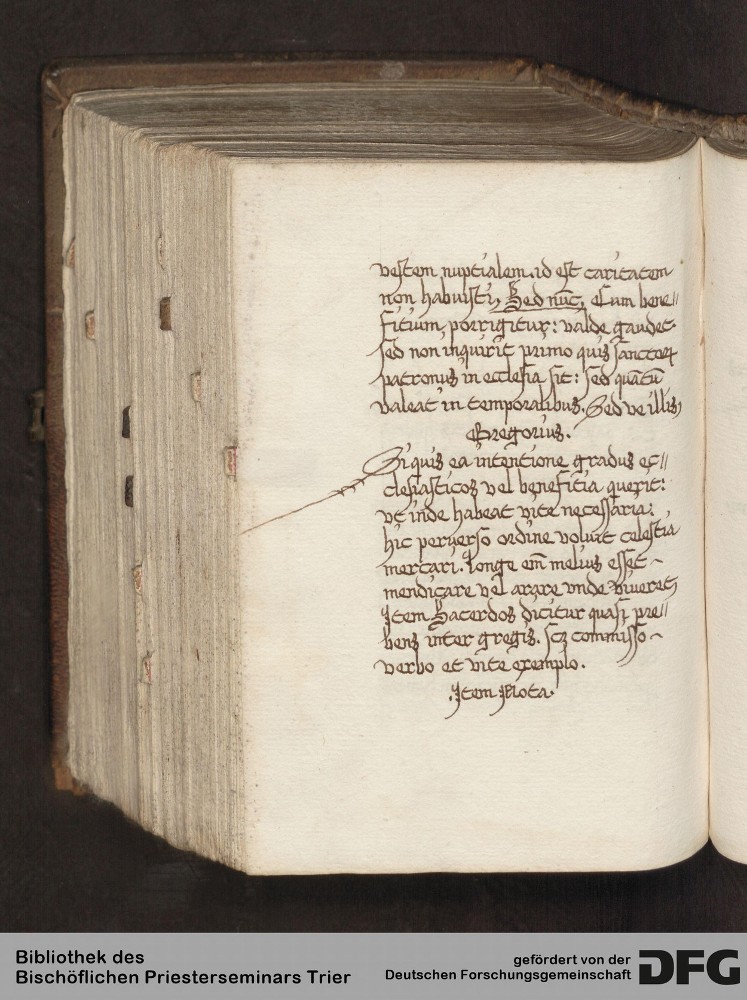 vestem nuptialem. id est caritatem
non habuisti, Sed nūc, Cum bene//
fitium, porrigitur: valde gaudet.
sed non inquirit primo quis sanctoꝝ
patronus in ecclesia sit: sed quātū
valeat in temporalibus. Sed ve illis,
Gregorius.
Si quis ea intentione gradus ec//
clesiasticos vel beneficia querit:
vt inde habeat vite necessaria:
hic peruerso ordine voluit celestia
mercari. longe em̄ melius esset ~
mendicare vel arare vnde viueret,
Item Sacerdos dicitur quasi pre//
bens inter gregis. scꝫ commisso ~
verbo et vite exemplo.
.Item Nota.
Bibliothek des
Bischöflichen Priesterseminars Trier
gefördert von der
Deutschen Forschungsgemeinschaft
DFG